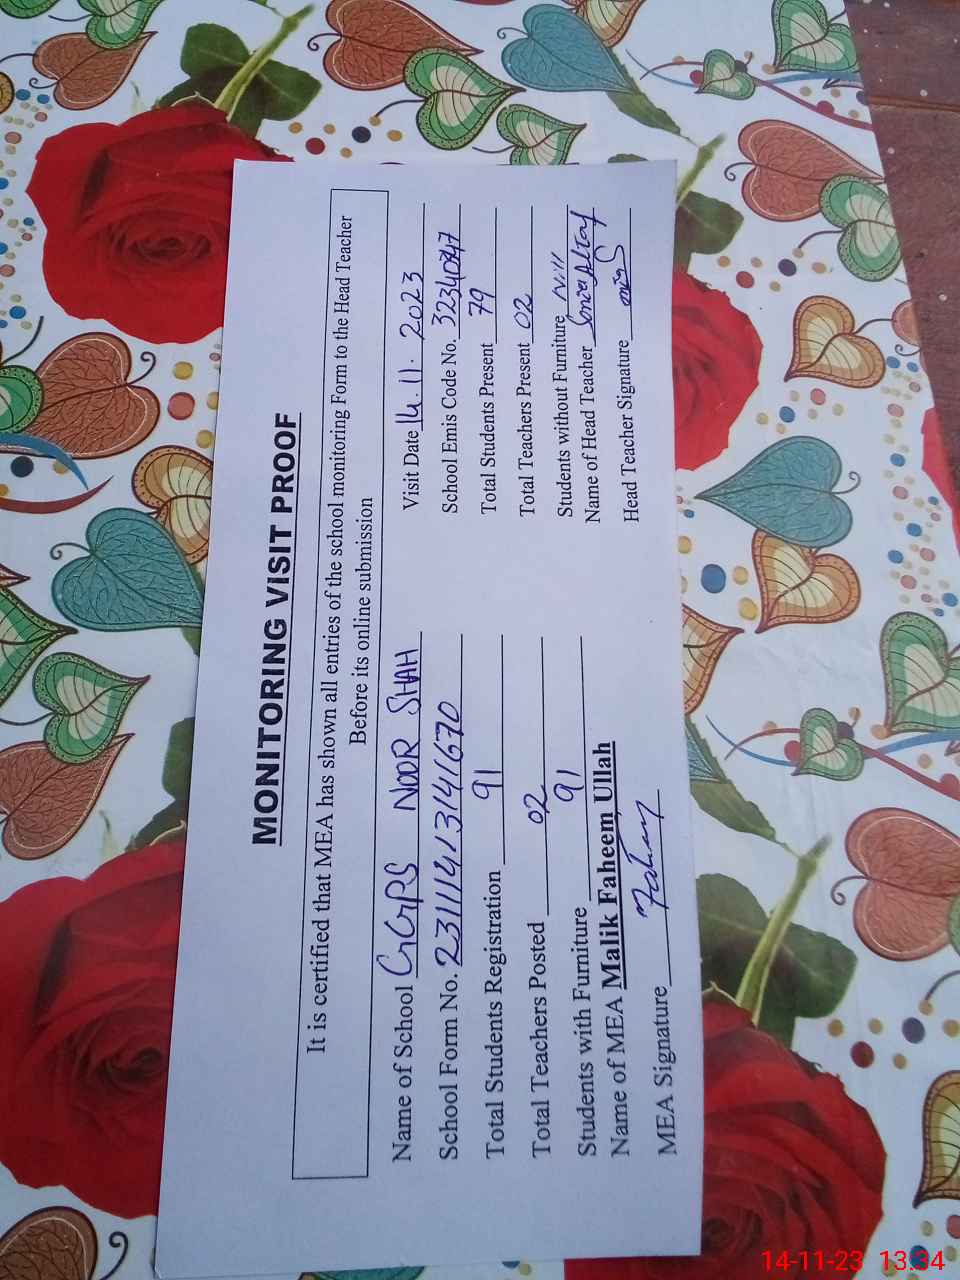 MONITORING VISIT PROOF
It is certified that MEA has shown all entries of the school monitoring Form to the Head Teacher
Before its online submission
Name of School GGPS NOOR SHAH Visit Date 14.11.2023
School Form No. 23111141314141670 School Emis Code No. 3234047
Total Students Registration 91 Total Students Present 79
Total Teachers Posted 02 Total Teachers Present 02
Students with Furniture 91 Students without Furniture Nill
Name of MEA Malik Faheem Ullah Name of Head Teacher Sonia Altaf
MEA Signature Faheem Head Teacher Signature
14-11-23 13:34